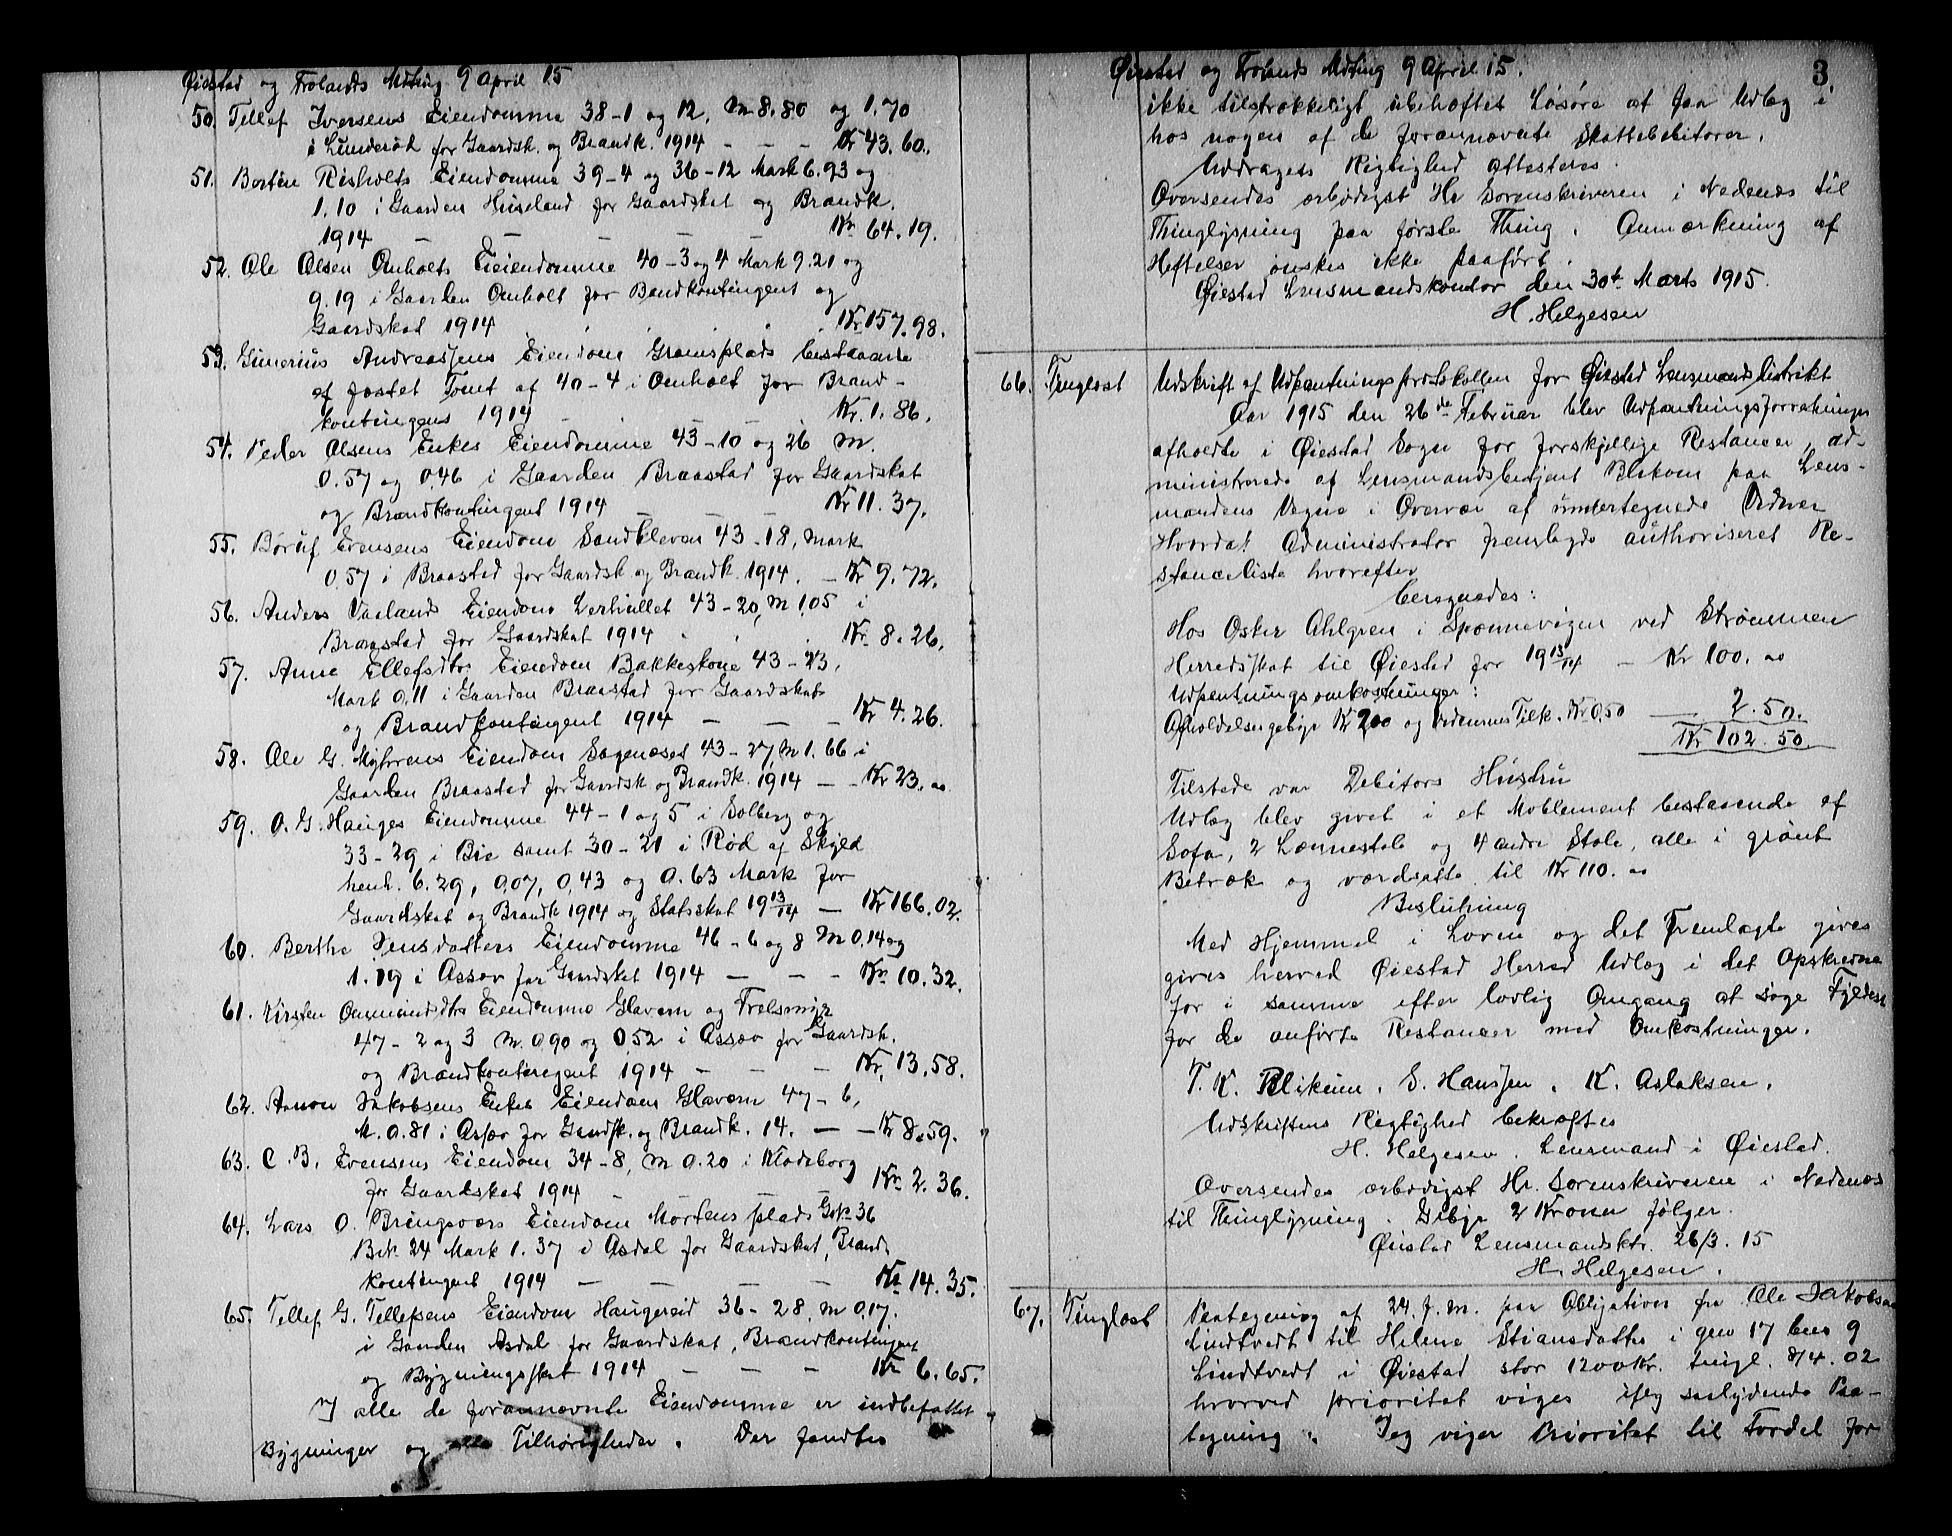 Øiestad og Frolands Mdting 9 April 15
50. Tellef Iversens Eiendomme 38-1 og 12, M 8.80 og 1.70
i Lunderød for Gaardsk. og Brandk. 1914 - - - Kr 43.60.
51. Risholts Eiendomme 39-4 og 36-12 Mark 6.93 og
1.10 i Gaarden Huseland for Gaardskat og Brandk.
1914 - - - - Kr 64.19.
52. Ole Olsen Omholts Eiendomme 40-3 og 4 Mark 9.21 og
9.19 i Gaarden Omholt for Bandkontingent og
Gaardskat 1914 Kr 157.98.
53. Gunerius Andreassens Eiendom Gramsplads bestaaende
af fæstet Tomt af 40-4 i Omholt for Brand-
kontingens 1914 - - - Kr. 1.86.
54. Peder Olsens Enkes Eiendomme 43-10 og 26 M.
0.57 og 0.46 i Gaarden Braastad for Gaardskat
og Brandkontingent 1914 - - Kr 11.37.
55. Evensens Eiendom Sandkleven 43-18, Mark
0.57 i Braastad for Gaardsk og Brandk. 1914. - Kr 9.72.
56. Anders Eiendom Lerhullet 43-20, M 1.05 i
Braastad for Gaardskat 1914 Kr. 8.26.
57. Anne Ellefsdtr. Eiendom Bakkestone 43-23,
Mark 0.11 i Gaarden Braastad for Gaardskat
og Brandkontingent 1914 - - - Kr 4.26.
58. Ole G. Myhrens Eiendom Sagenæset 43-27, M 1.66 i
Gaarden Braastad for Gaardsk og Brandk. 1914 - - Kr 23.00.
59. O. G. Hauges Eiendomme 44-1 og 5 i Solberg og
33-29 i Bie samt 30-21 i Rød af Skyld
henh. 6.29, 0,07, 0,43 og 0.63 Mark for
Gaardskat og Brandk 1914 og Statsskat 1913/14 - Kr 166.02.
60. Berthe Jensdatters Eiendomme 46-6 og 8 M 0.14 og
1.19 i Assev for Gaardskat 1914 - - - Kr 10.32.
61. Kirsten Eiendomme Glavern og Trelsmyr
47-2 og 3 M. 0.90 og 0.52 i Assev for Gaardsk.
og Brandkontingent 1914 - - - Kr. 13.58.
62. Jakobsens Enkes Eiendom Glavern 47-6,
M. 0.81 i Assev for Gaardsk. og Brandk. 14. - - Kr 8.59.
63. C. B. Evensens Eiendom 34-8, M 0.20 i Klodeborg
for Gaardskat 1914 - - - Kr 2.36.
64. Lars O. Bringsværs Eiendom Mortensplads Gnr 36
Bnr. 24 Mark 1.37 i Asdal for Gaardskat, Brand-
kontingent 1914 - - - - Kr 14.35.
65. Tellef G. Tellefsens Eiendom Haugereid 36-28, M 0,17.
i Gaarden Asdal for Gaardskat, Brandkontingent
og Bygningsskat 1914 - - - Kr 6.65.
I alle de forannævnte Eiendomme er indbefattet
Bygninger og alle Tilhørigheder. Der fandtes
Øiestad og Frolands Mdting 9 April 15. 3
ikke tilstrækkeligt ubehæftet Løsøre at faa Udlæg i
hos nogen af de forannævnte Skattedebitorer.
Uddragets Rigtighed attesteres.
Oversendes ærbødigst Hr Sorenskriveren i Nedenæs til
Thinglysning paa første Thing. Anmærkning af
Heftelser ønskes ikke paaført.
Øiestad Lensmandskontor den 30te Marts 1915.
H. Helgesen
66. Tinglæst Udskrift af Udpantningsprotokollen for Øiestad Lensmandsdistrikt
Aar 1915 den 26de Februar blev Udpantningsforretninger
afholdte i Øiestad Sogn for forskjellige Restancer, ad-
ministrerede af Lensmandsbetjent Blikom paa Lens-
mandens Vegne i Overvær af undertegnede Vidner
Hvordat Administrator fremlagde authoriseret Re-
stanceliste hvorefter
beregnedes:
Hos Oskar Ahlgren i Spænnevigen ved Strømmen
Herredsskat til Øiestad for 1913/14 - Kr 100.00
Udpantningsomkostninger:
Afholdelsesgebyr Kr 2.00 og Vidnernes Tilk. Kr 0,50 - 2.50.
Kr 102.50
Tilstede var Debitors Hustru
Udlæg blev givet i et Møblement bestaaende af
Sofa, 2 Lænnestole og 4 andre Stole, alle i grønt
Betræk og værdsatte til Kr 110.00
Beslutning
Med Hjemmel i Loven og det Fremlagte gives
gives herved Øiestad Herred Udlæg i det Opskrevne
for i samme efter lovlig Omgang at søge Fyldest
for de anførte Restancer med Omkostninger.
T. K. Blikom. S. Hanssen. K. Aslaksen.
Udskriftens Rigtighed bekræftes
H. Helgesen. Lensmand i Øiestad.
Oversendes ærbødigst Hr. Sorenskriveren i Nedenæs
til Thinglysning. Gebyr 2 Kroner følger.
Øiestad Lensmandsktr. 26/3. 15
H. Helgesen.
67. Tinglæst Paategning af 24. f. M. paa Obligation fra Ole Jakobsen
Lindtvedt til Helene Stiansdatter i gno 17 bno 9
Lindtvedt i Øiestad stor 1200 Kr. tingl. 8/4. 02
hvorved prioritet viges iflg saalydende Paa-
tegning: Jeg viger Prioritet til Fordel for